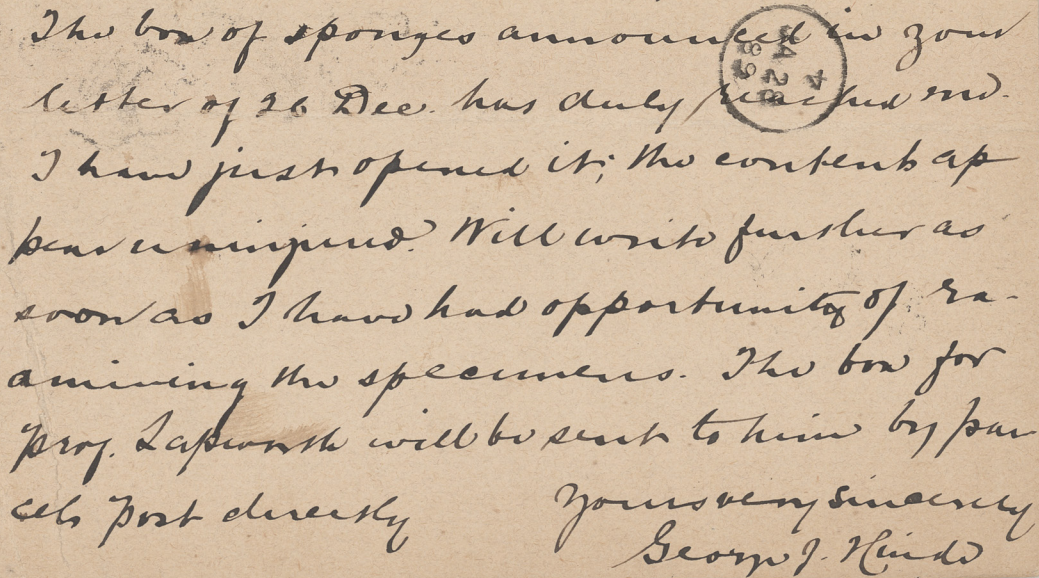 The box of sponges announced in your
letter of 26 Dec. has duly reached me.
I have just opened it; the contents ap
pear uninjured. Will write further as
soon as I have had opportunity of ex-
amining the specimens. The box for
Prof. Lapworth will be sent to him by par
cels Post directly
Yours very sincerely
George J. Hinde
4
JA 28
89